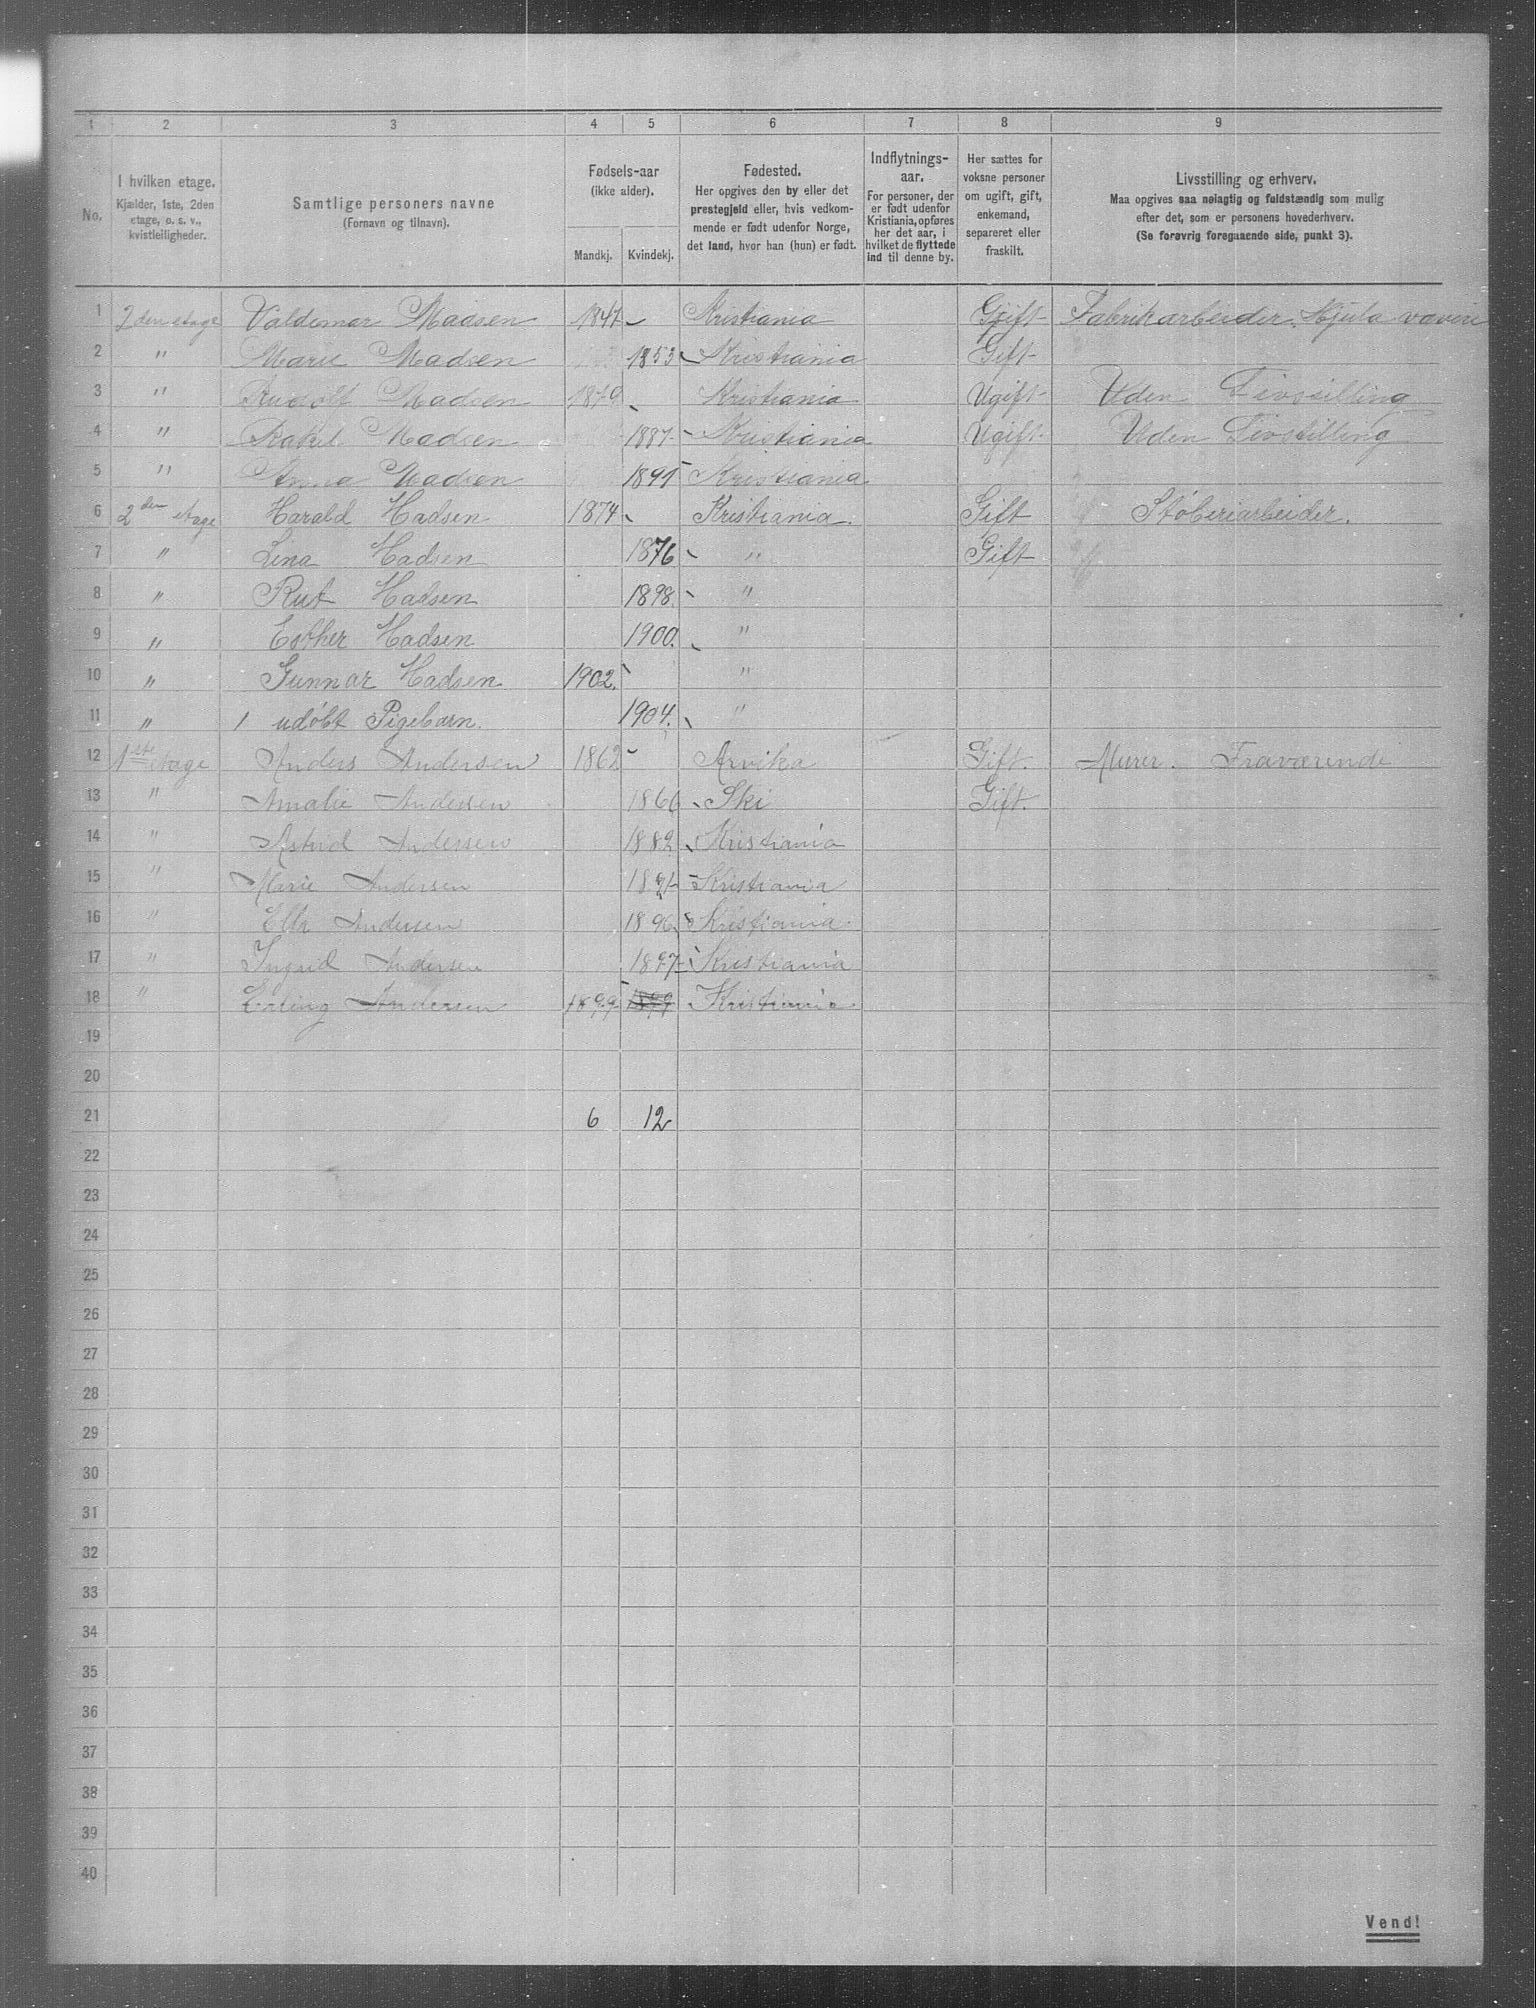 1 2 3 4 5 6 7 8 9
No.
I hvilken etage.
Kjælder, 1ste, 2den
etage, o. s. v.,
kvistleiligheder.
Samtlige personers navne
(Fornavn og tilnavn).
Fødsels-aar
(ikke alder).
Mandkj. Kvindekj.
Fødested.
Her opgives den by eller det
prestegjeld eller, hvis vedkom-
mende er født udenfor Norge,
det land, hvor han (hun) er født.
Indflytnings-
aar.
For personer, der
er født udenfor
Kristiania, opføres
her det aar, i
hvilket de flyttede
ind til denne by.
Her sættes for
voksne personer
om ugift, gift,
enkemand,
separeret eller
fraskilt.
Livsstilling og erhverv.
Maa opgives saa nøiagtig og fuldstændig som mulig
efter det, som er personens hovederhverv.
(Se forøvrig foregaaende side, punkt 3).
1 2den etage Valdemar Madsen 1847 Kristiania Gift Fabrikarbeider. Hjula væveri
2 " Marie Madsen 1853 Kristiania Gift
3 " Rudolf Madsen 1879 Kristiania Ugift Uden Livsstilling
4 " Rakel Madsen 1887 Kristiania Ugift Uden Livstilling
5 " Anna Madsen 1891 Kristiania
6 2den etage Harald Hadsen 1874 Kristiania. Gift Støberiarbeider.
7 " Lina Hadsen 1876 " Gift
8 " Rut Hadsen 1898. "
9 " Esther Hadsen 1900. "
10 " Gunnar Hadsen 1902. "
11 " 1 udøbt Pigebarn. 1904. "
12 1ste etage Anders Andersen 1862 Arvika Gift. Murer. Fraværende
13 " Amalie Andersen 1866 Ski Gift.
14 " Astrid Andersen 1889 Kristiania
15 " Marie Andersen Kristiania
16 " Andersen 1896. Kristiania.
17 " Ingrid Andersen 1897 Kristiania
18 " Erling Andersen 1899 1899 Kristiania
19
20
21 6 12
22
23
24
25
26
27
28
29
30
31
32
33
34
35
36
37
38
39
40
Vend!